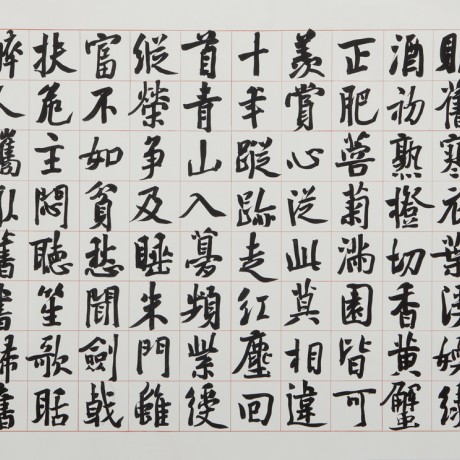 舊寒衣葉
酒初熟橙切香黃蟹
正肥菩菊滿園皆可
羨賞心從此莫相違
十年蹤跡走紅塵回
首青山入夢頻紫綬
縱榮爭及睡朱門雖
富不如貧愁聞劍戟
扶危主悶聽笙歌聒
醉人攜舊書歸舊